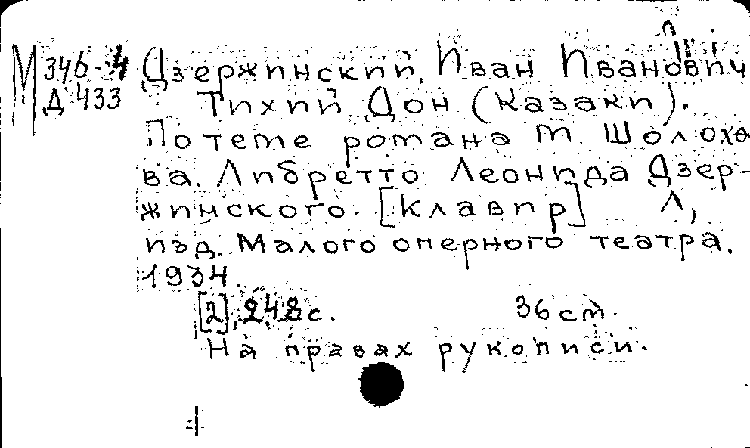 М 346-4 Дзержинский, Иван Иванович
Д 433 Тихий Дон (Казаки).
По теме романа М. Шолохо
ва. Либретто Леонида Дзер-
жинского. [Клавир] Л,
изд. Малого оперного театра.
1934.
[2], 248 с. 36 см.
На правах рукописи.